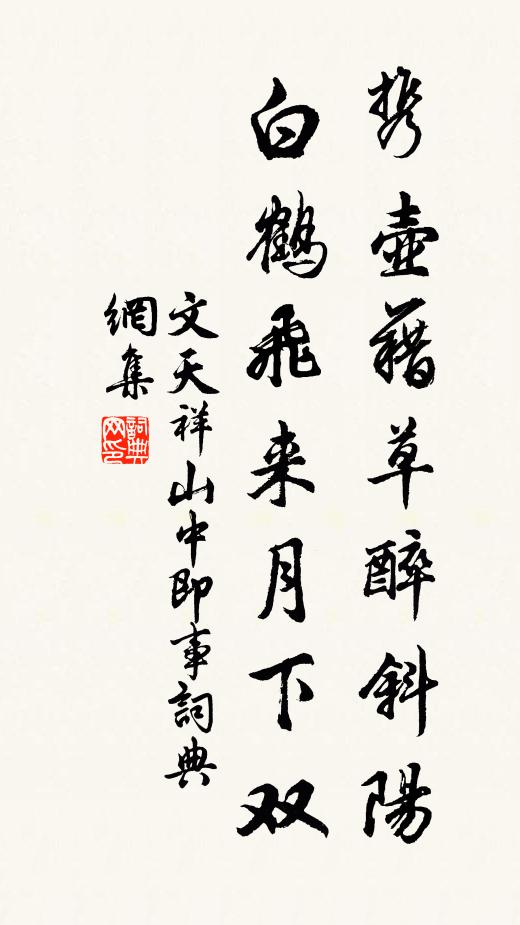 携壺藉草醉斜陽
白鶴飛来月下双
文天祥山中即事詞典
網集
詞典
网印